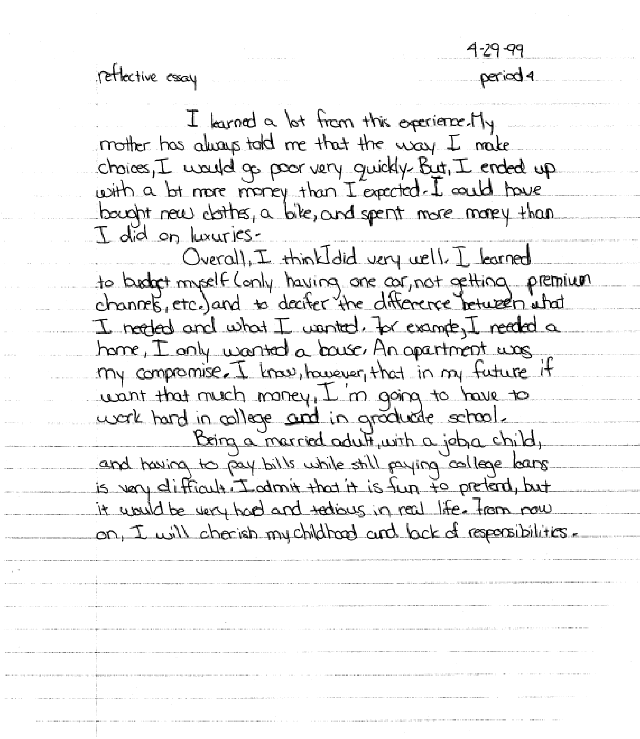 4-29-99
reflective essay period 4
I learned a lot from this experience. My
mother has always told me that the way I make
choices, I would go poor very quickly. But, I ended up
with a lot more money than I expected. I could have
bought new clothes, a bike, and spent more money than
I did on luxuries.
Overall, I think I did very well. I learned
to budget myself (only having one car, not getting premium
channels, etc.) and to decifer the difference between what
I needed and what I wanted. For example, I needed a
home, I only wanted a house. An apartment was
my compromise. I know, however, that in my future if
want that much money, I'm going to have to
work hard in college and in graduate school.
Being a married adult, with a job, a child,
and having to pay bills while still paying college loans
is very difficult. I admit that it is fun to pretend, but
it would be very hard and tedious in real life. From now
on, I will cherish my childhood and lack of responsibilities.